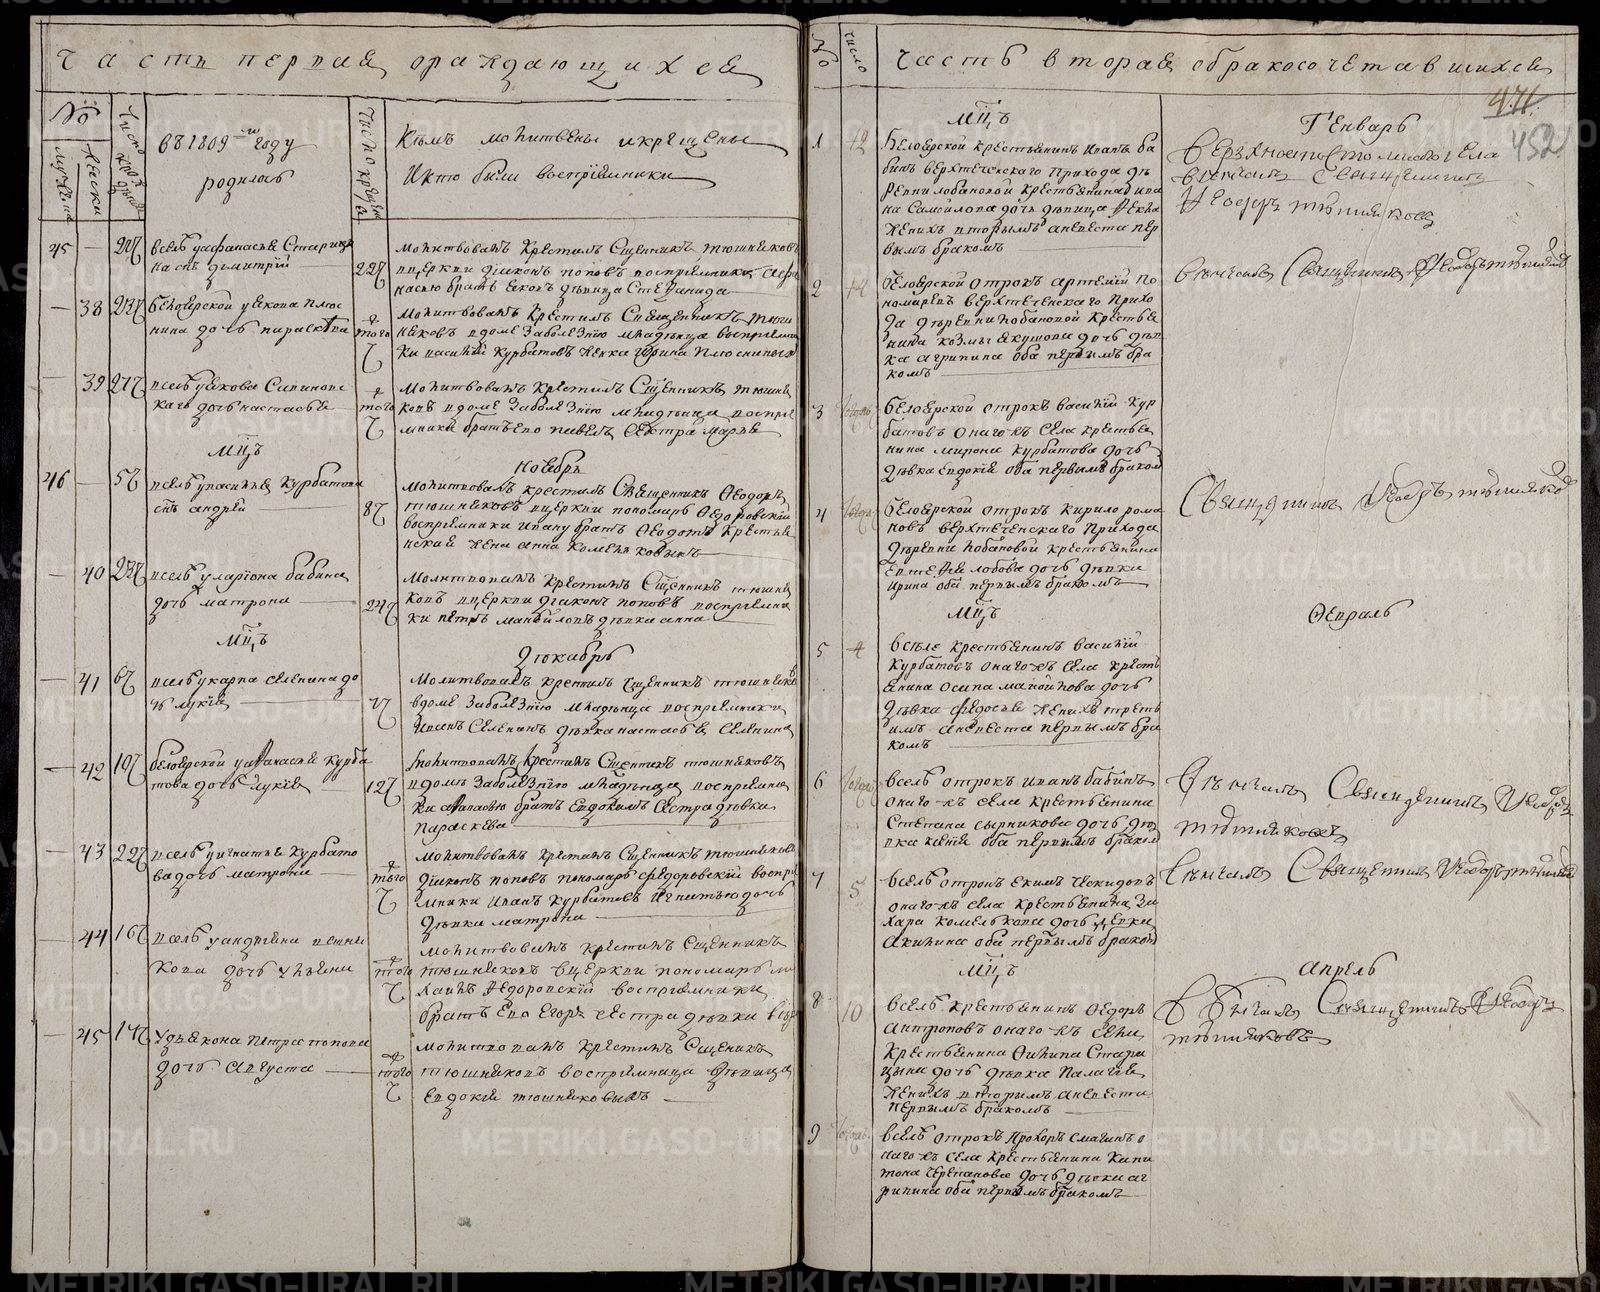 Часть первая ораждающихся
№
мужеска
женска
Число рожденiя
въ 1809 м году
родилась
Число крщенiя
Кѣмъ молитвены икрещены
Икто были воспрiемники
45 — 22
всель уафанасья Старицы
на снъ димитрiй
22
молитвовалъ Крестилъ Сщенникъ тюшняковъ
вцеркви дiяконъ поповъ воспрiемники афа
насью братъ яковъ дѣвица Степанида
— 38 23
белоярской уякова Плюс
нина дочь параскѣва
того
молитвовалъ Крестилъ Священникъ тюш
няковъ вдоме Заболезнiю младѣнца воспрiемни
ки василiй Курбатовъ женка ирина Плюснины
— 39 27
вселѣ уякова Савиновс
каго дочь настасья
того
молитвовалъ Крестилъ Сщенникъ тюшня
ковъ вдоме Заболезнiю младѣнца воспрiе
мники братъ его павелъ Сѣстра марья
мцъ
ноябрь
46 — 5
вселѣ увасилья Курбатова
снъ андрей
8
молитвовалъ крестилъ Священникъ Ѳеодоръ
тюшняковъ вцеркви пономарь Ѳедоровскiй
воспрiемники ивану братъ Ѳеодотъ Крестья
нский жена анна Комельковыхъ
— 40 23
вселѣ уларiона бабина
дочь матрона
24
Молитвовалъ Крестилъ Сщенникъ тюшня
ковъ вцеркви дiаконъ поповъ воспрiемни
ки петръ мануйловъ дѣвка анна
мцъ
Дѣкабрь
— 41 6
вселѣ укарпа селянина до
чь лукiя
7
молитвовалъ крестилъ Сщенникъ тюшняковъ
вдоме Заболезнiю младѣнца воспрiемники
иванъ Селянинъ дѣвка настасья Селянина
— 42 10
белоярской уафанасья Курба
това дочь лукiя
12
молитвовалъ Крестилъ Сщенникъ тюшняковъ
вдомѣ Заболезнiю младѣнца воспрiемни
ки афанасью братъ Евдокимъ Сѣстра дѣвка
параскева
— 43 22
вселѣ уигнатья Курбато
ва дочь матрона
того
молитвовалъ крестилъ Сщенникъ тюшняковъ
дiяконъ поповъ пономарь Федоровскiй воспрiе
мники иванъ Курбатовъ игнатью дочь
дѣвка матрона
— 44 16
вселѣ уандреяна
кова дочь ульяна
того
молитвовалъ крестилъ Сщенникъ
тюшняковъ вцеркви пономарь ми
хаилъ Ѳедоровскiй воспрiемники
братъ Его Егоръ сестра дѣвка
— 45 17
удьякона петра попова
дочь августа
того
молитвовалъ крестилъ Сщеникъ
тюшняковъ воспрiемница дѣвица
Евдокiя тюшняковыхъ
№
число
Часть вторая обракосочетавшихся
471
452
мцъ
Генварь
1 12
белоярской крестьянинъ иванъ ба
бинъ верхтеченскаго прихода де
ревни лобановой крестьянина ива
на Самойлова дочь дѣвица Ѳекла
Женихъ вторымъ аневеста пер
вымъ бракомъ
венчалъ Священникъ
Ѳеодоръ тюшняковъ
2
белоярской отрокъ артемiй по
номаревъ верхтеченскаго прихо
да деревни лобановой Крестья
нина козмы якушова дочь дѣв
ка агрипина оба первымъ бра
комъ
венчалъ Священникъ Ѳеодоръ тюшняковъ
3
белоярской отрокъ василiй Кур
батовъ онагожъ села крестья
нина мирона курбатова дочь
дѣвка евдокiя оба первымъ браком
4
белоярской отрокъ кирило рома
новъ верхтеченскаго прихода
деревни лобановой крестьянина
лобова дочь дѣвка
ирина оба первымъ бракомъ
Священникъ Ѳеодоръ тюшняковъ
мцъ
Ѳевраль
5 4
вселе крестьянинъ василiй
курбатовъ онагожъ села кресть
янина осипа манойлова дочь
дѣвка федосья женихъ треть
имъ аневеста первымъ бра
комъ
6
вселѣ отрокъ иванъ бабинъ
онагожъ села крестьянина
Степана сырникова дочь де
вка ксенiя оба первымъ браком
Венчалъ Священникъ Ѳеодоръ
тюшняковъ
7 5
вселѣ отрокъ екимъ
онагожъ села крестьянина За
хара комелькова дочь девка
акилина оба первымъ браком
венчалъ Священникъ Ѳеодоръ тюшняковъ
мцъ
Апрель
8 10
вселѣ крестьянинъ Ѳедоръ
антроповъ онагожъ села
крестьянина Филипа Стари
цына дочь дѣвка палагiя
женихъ вторымъ аневеста
первымъ бракомъ
Венчалъ Священникъ Ѳеодоръ
тюшняковъ
9
вселѣ отрокъ прохоръ смагинъ о
нагожъ села крестьянина Капи
тона черепанова дочь девка аг
рипина оба первымъ бракомъ
METRIKI.GASO-URAL.RU